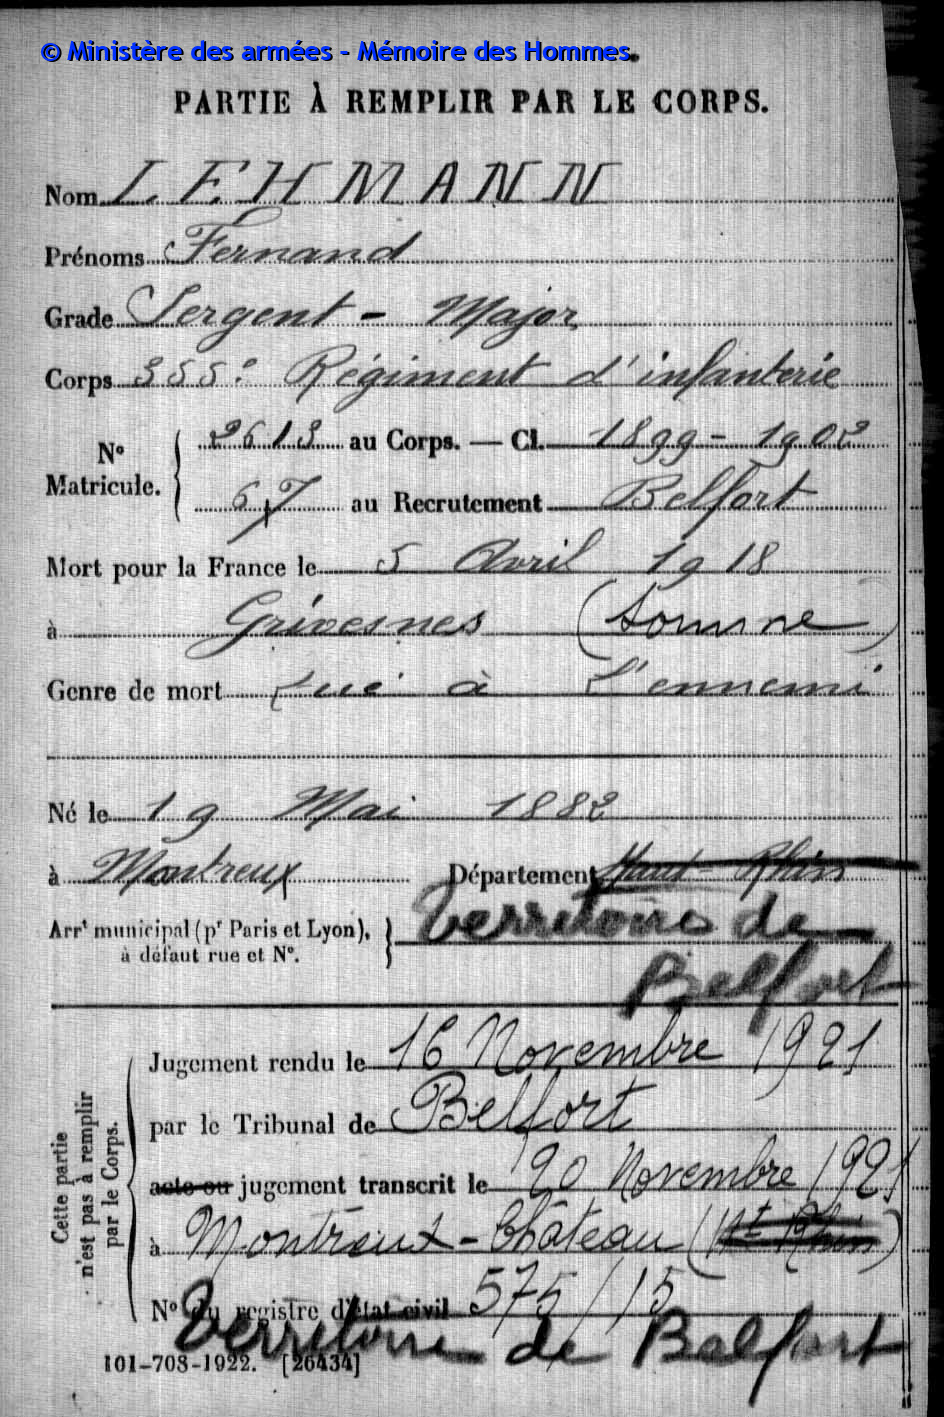 © Ministère des armées - Mémoire des Hommes
PARTIE À REMPLIR PAR LE CORPS.
Nom LEHMANN
Prénoms Fernand
Grade Sergent - Major
Corps 355e Régiment d'infanterie
N° Matricule. 2613 au Corps. — Cl. 1899 - 1902
67 au Recrutement Belfort
Mort pour la France le 5 Avril 1918
à Grivesnes (Somme)
Genre de mort tué à l'ennemi
Né le 19 Mai 1882
à Montreux Département Haut-Rhin
Arrt municipal (pr Paris et Lyon), à défaut rue et N°. Territoire de
Belfort
Cette partie n'est pas à remplir par le Corps.
Jugement rendu le 16 Novembre 1921
par le Tribunal de Belfort
acte ou jugement transcrit le 20 Novembre 1921
à Montreux-Château (Ht Rhin)
N° du registre d'état civil 575/15
Territoire de Belfort
101-708-1922. [26434]